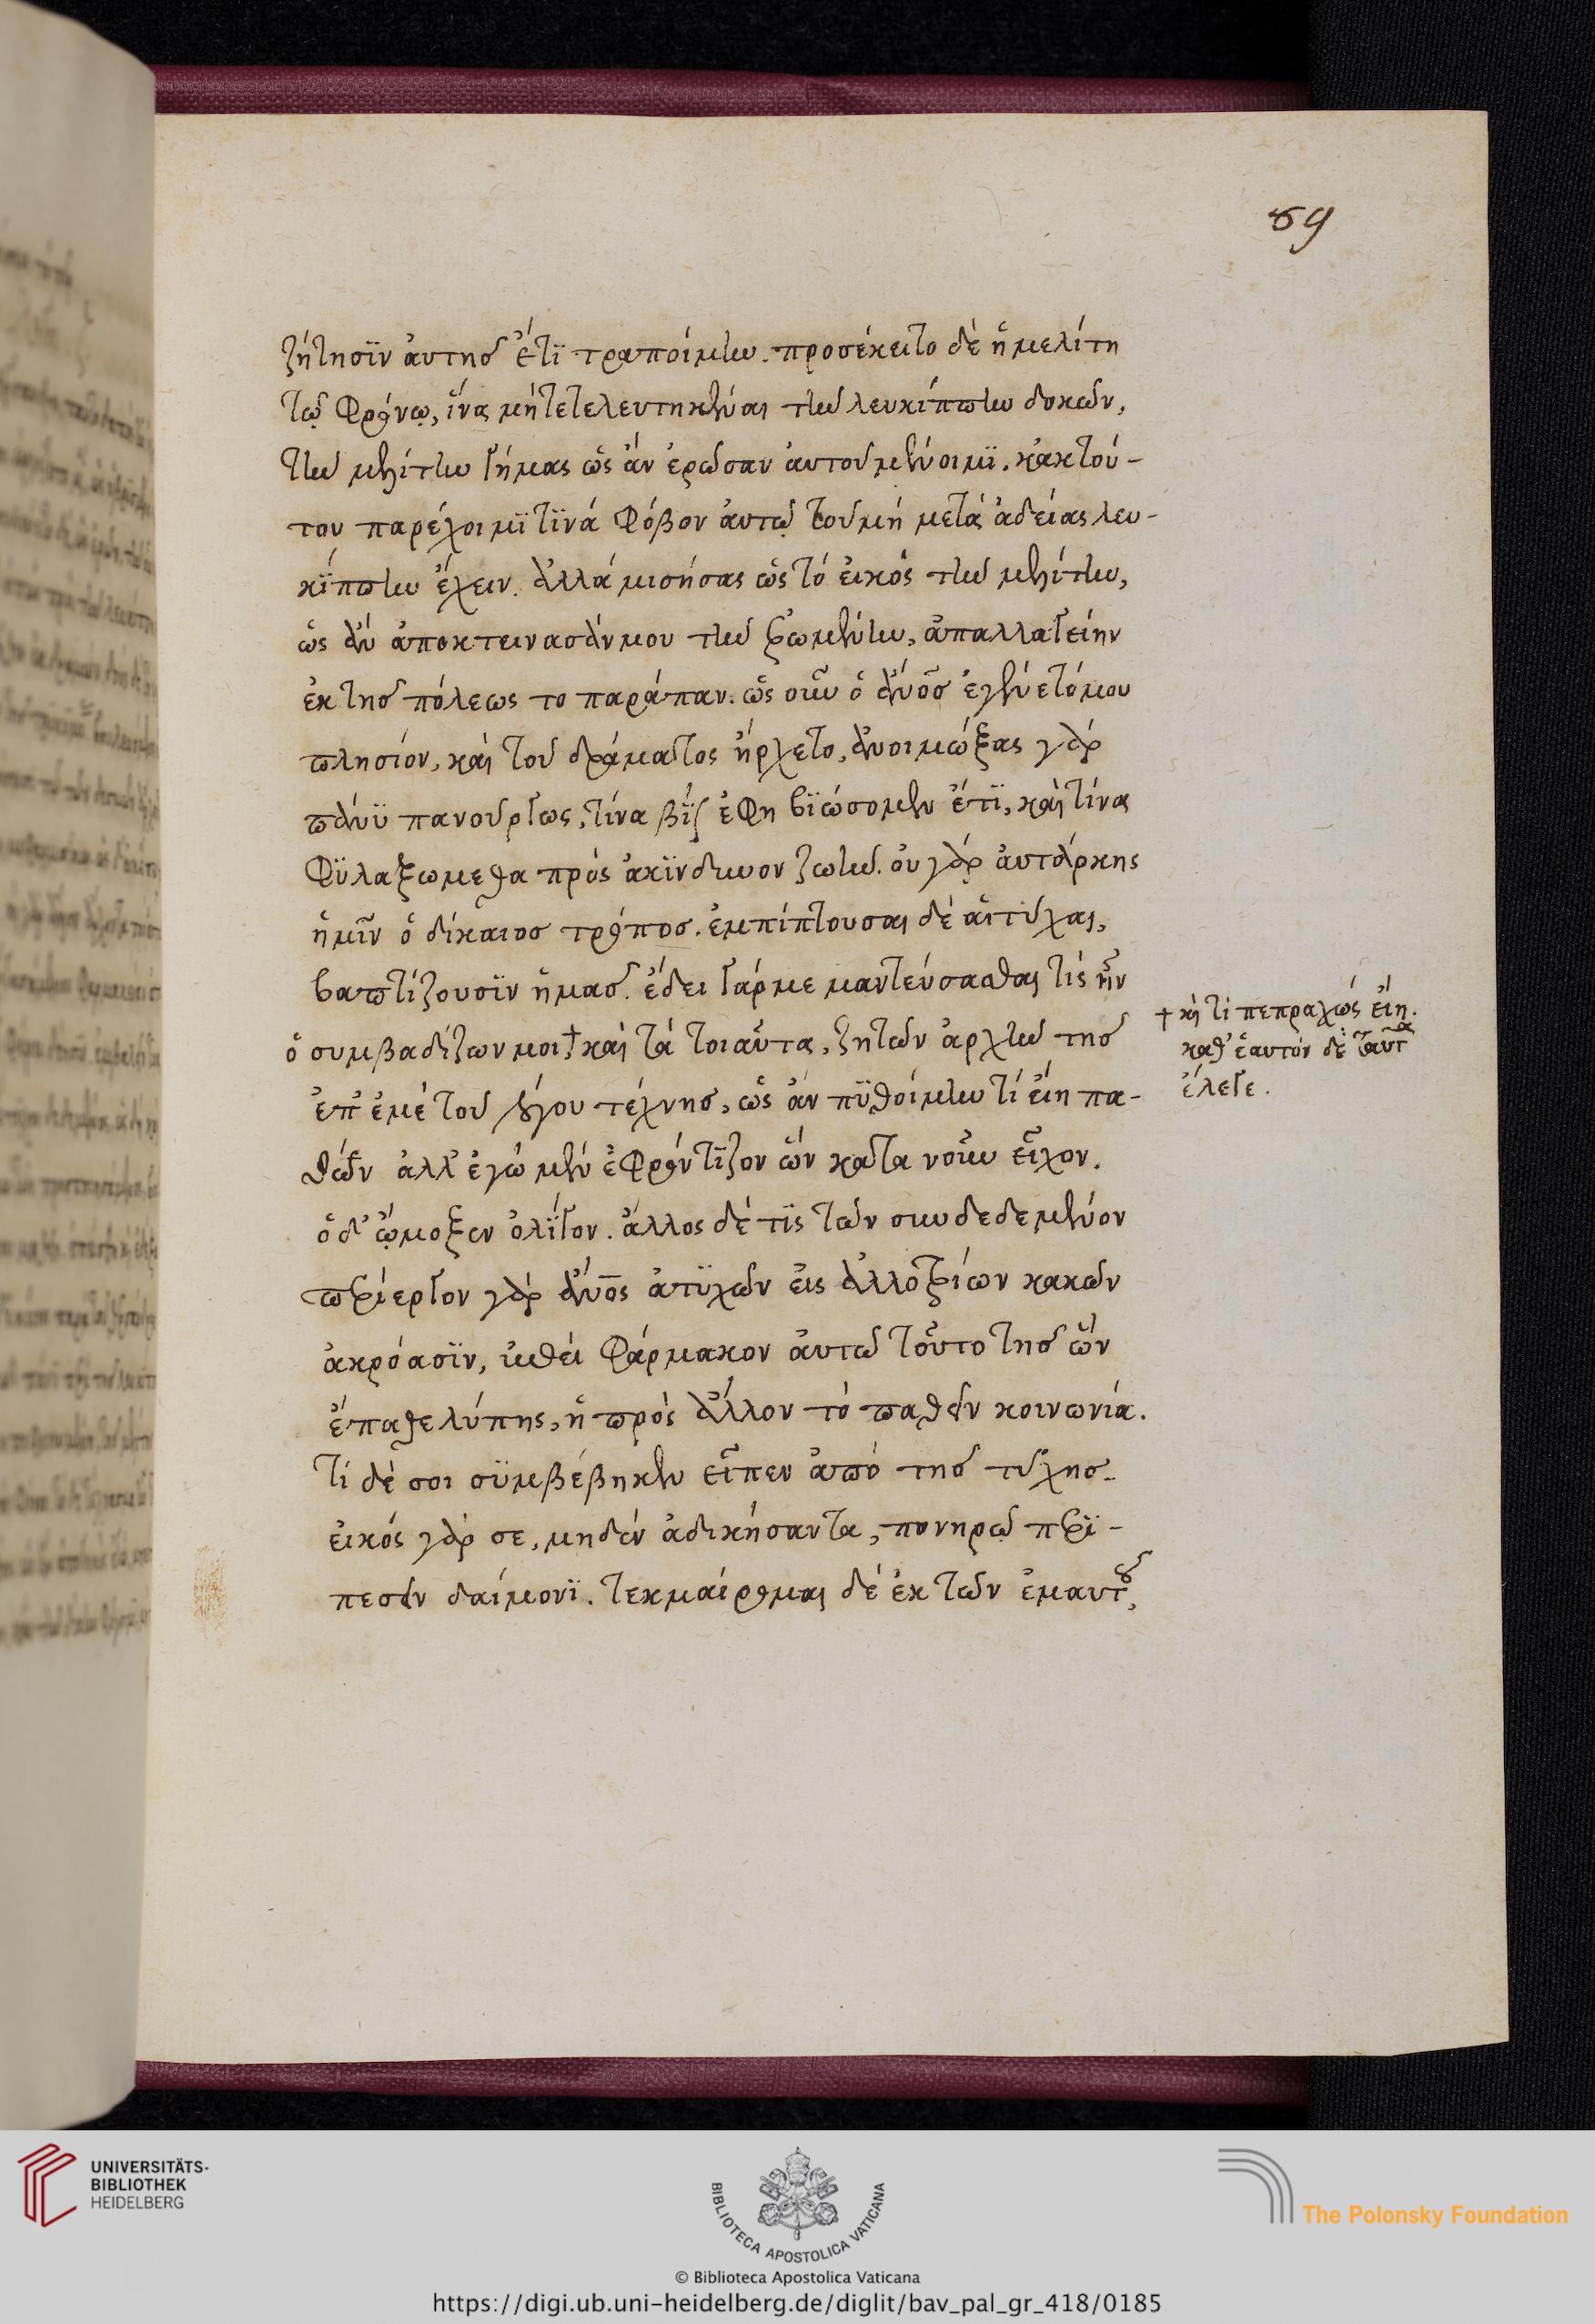 59
ζήτησϊν ἀυτησ ἔτϊ τραποίμην. προσέκειτο δὲ ἡ μελίτη
τῷ φθόνῳ, ἵνα μὴ τετελευτηκέναι τὴν λευκίππην δοκῶν,
τὴν μελίτην γήμας ὡς ἂν ἐρῶσαν ἀυτοῦ μένοιμϊ. κἀκ τού-
του παρέχοιμϊ τϊνά φόβον ἀυτῷ τοῦ μὴ μετὰ ἀδείας λευ-
κϊππην ἔχειν. ἀλλὰ μισήσας ὡς τὸ ἐικὸς τὴν μελίτην,
ὡς ἂν ἀποκτεινασάν μου τὴν ἐρωμένην, ἀπαλλαγείην
ἐκ τησ πόλεως το παράπαν. ὡς οὖν ὁ ἄνοσ ἐγένετό μου
πλησίον, καὶ τοῦ δράματος ἤρχετο, ἀνοιμώξας γὰρ
πάνϋ πανούργως, τίνα βίον ἔφη βϊώσομεν ἔτϊ, καὶ τίνα
φϋλαξωμεθα πρὸς ἀκϊνδυνον ζωήν. ὀυ γὰρ ἀυτάρκης
ἡμῖν ὁ δίκαιοσ τρόποσ. ἐμπίπτουσαι δὲ ἁι τύχαι,
βαπτίζουσϊν ἡμασ. ἔδει γάρ με μαντεύσασθαι τίς ἦν
ὁ συμβαδίζων μοι † καὶ τὰ τοιαῦτα, ζητῶν ἀρχὴν τησ
ἐπ' ἐμὲ τοῦ λόγου τέχνησ, ὡς ἂν πϋθοίμην τί ἐίη πα-
θών ἀλλ' ἐγὼ μὲν ἐφρόντϊζον ὧν κατα νοῦν εἶχον.
ὁ δ' ᾤμοξεν ὀλϊγον. ἄλλος δέ τϊς τῶν συνδεδεμένον
περίεργον γὰρ ἄνος ἀτϋχῶν ἐις ἀλλοτρίων κακῶν
ἀκρόασϊν, ἐπεὶ φάρμακον ἀυτῶ τοῦτο τησ ὧν
ἔπαθε λύπης, ἡ πρὸς ἄλλον τὸ παθεῖν κοινωνία.
τί δέ σοι σϋμβέβηκεν εἶπεν ἀπὸ τησ τύχησ.
ἐικὸς γὰρ σε, μηδὲν ἀδικήσαντα, πονηρῷ περϊ-
πεσεῖν δαίμονϊ. τεκμαίρομαι δὲ ἐκ τῶν ἐμαυτοῦ,
† κὴ τί πεπραχὼς ἐίη.
καθ' ἑαυτόν δὲ ταῦτα
ἔλεγε.
UNIVERSITÄTS-
BIBLIOTHEK
HEIDELBERG
BIBLIOTECA APOSTOLICA VATICANA
The Polonsky Foundation
© Biblioteca Apostolica Vaticana
https://digi.ub.uni-heidelberg.de/diglit/bav_pal_gr_418/0185